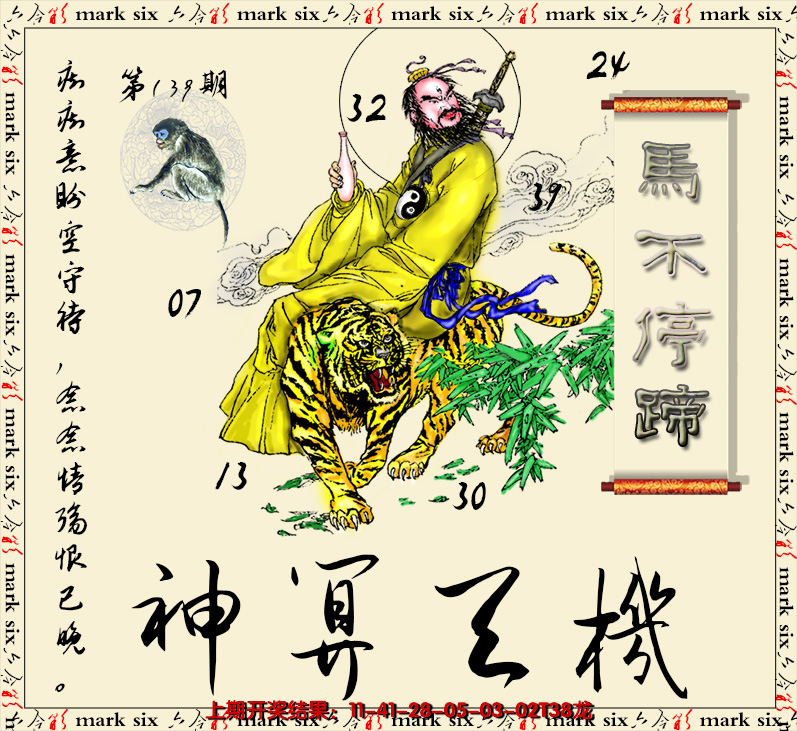 mark six 六合彩 mark six 六合彩 mark six 六合彩 mark six 六合彩 mark six
第139期
24
32
39
07
13
30
馬不停蹄
痴痴意盼空守待，念念情殇恨已晚。
神算天機
上期开奖结果：11-41-28-05-03-02T38龙
mark six 六合彩 mark six 六合彩 mark six 六合彩 mark six 六合彩 mark six